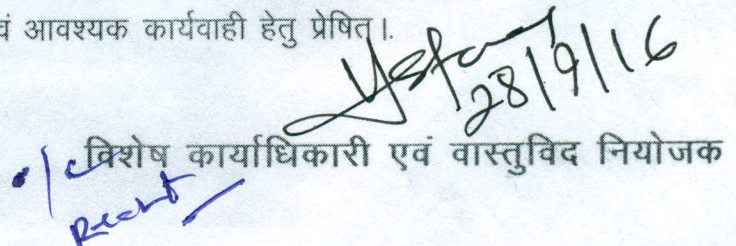 वं आवश्यक कार्यवाही हेतु प्रेषित।.
28/9/16
विशेष कार्याधिकारी एवं वास्तुविद नियोजक